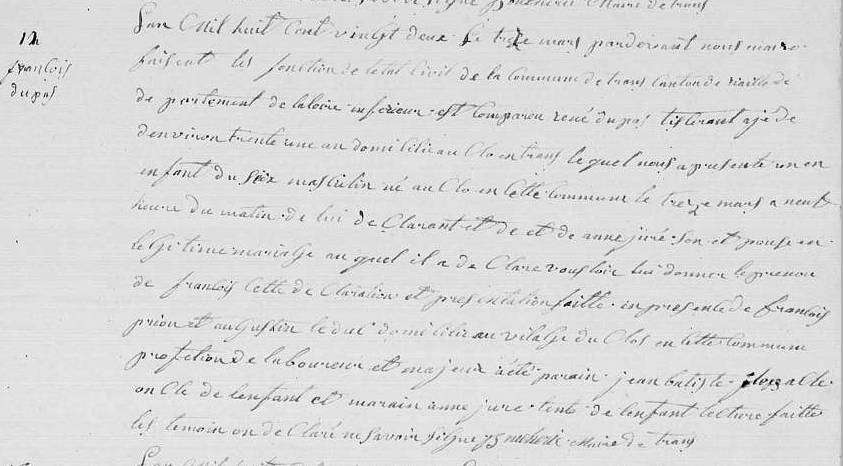 maire de trans
12
francois
dupas
L'an Mil huit Cent vingt deux le treze mars pardevant nous maire
faisent les fonction de letat Civil de la Commune de trans Canton de riaille dé
de partement de la loire inferieur est Comparou rené dupas tisserant ajé de
denviron trente une an domicilié au Clo en trans lequel nous a presente un en
enfant du sexe masculin né au Clo en Cette Commune le treze mars a neuf
heure du matin de lui de Clarant et de et de anne juré son et pouse en
legitime marialge au quel il a de Clare vousloir lui donner le prenou
de francois Cette de Claration et presentation faitte in presente de francois
prion et augustin leduc domicilié au vilalge du Clos en Cette Commune
profetion de laboureur et majeur a été parain jean batiste
on Cle de lenfant et marain anne jure tente de lenfant lecture faitte
les temoin on de Claré ne savoir signe maire de trans
L'an Mil huit